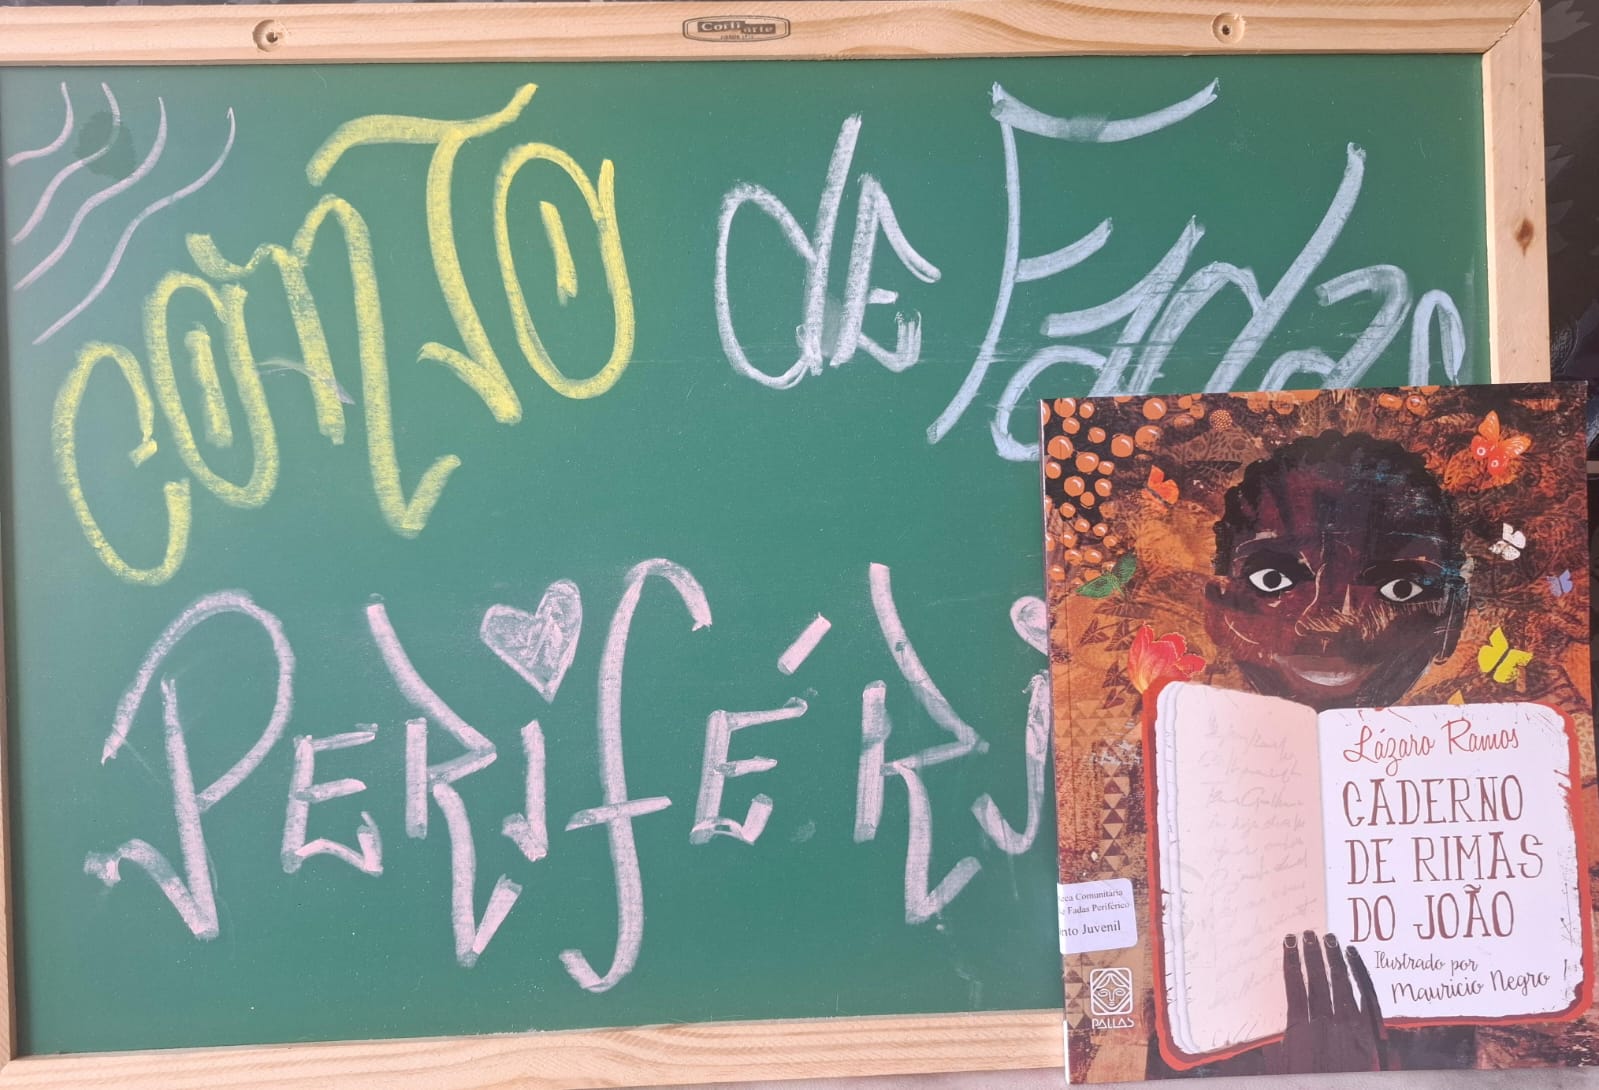 Corti arte
CONTO de Fadas
PERIFÉRI
Lázaro Ramos
CADERNO
DE RIMAS
DO JOÃO
Ilustrado por
Mauricio Negro
eca Comunitária
e Fadas Periférico
nto Juvenil
PALLAS